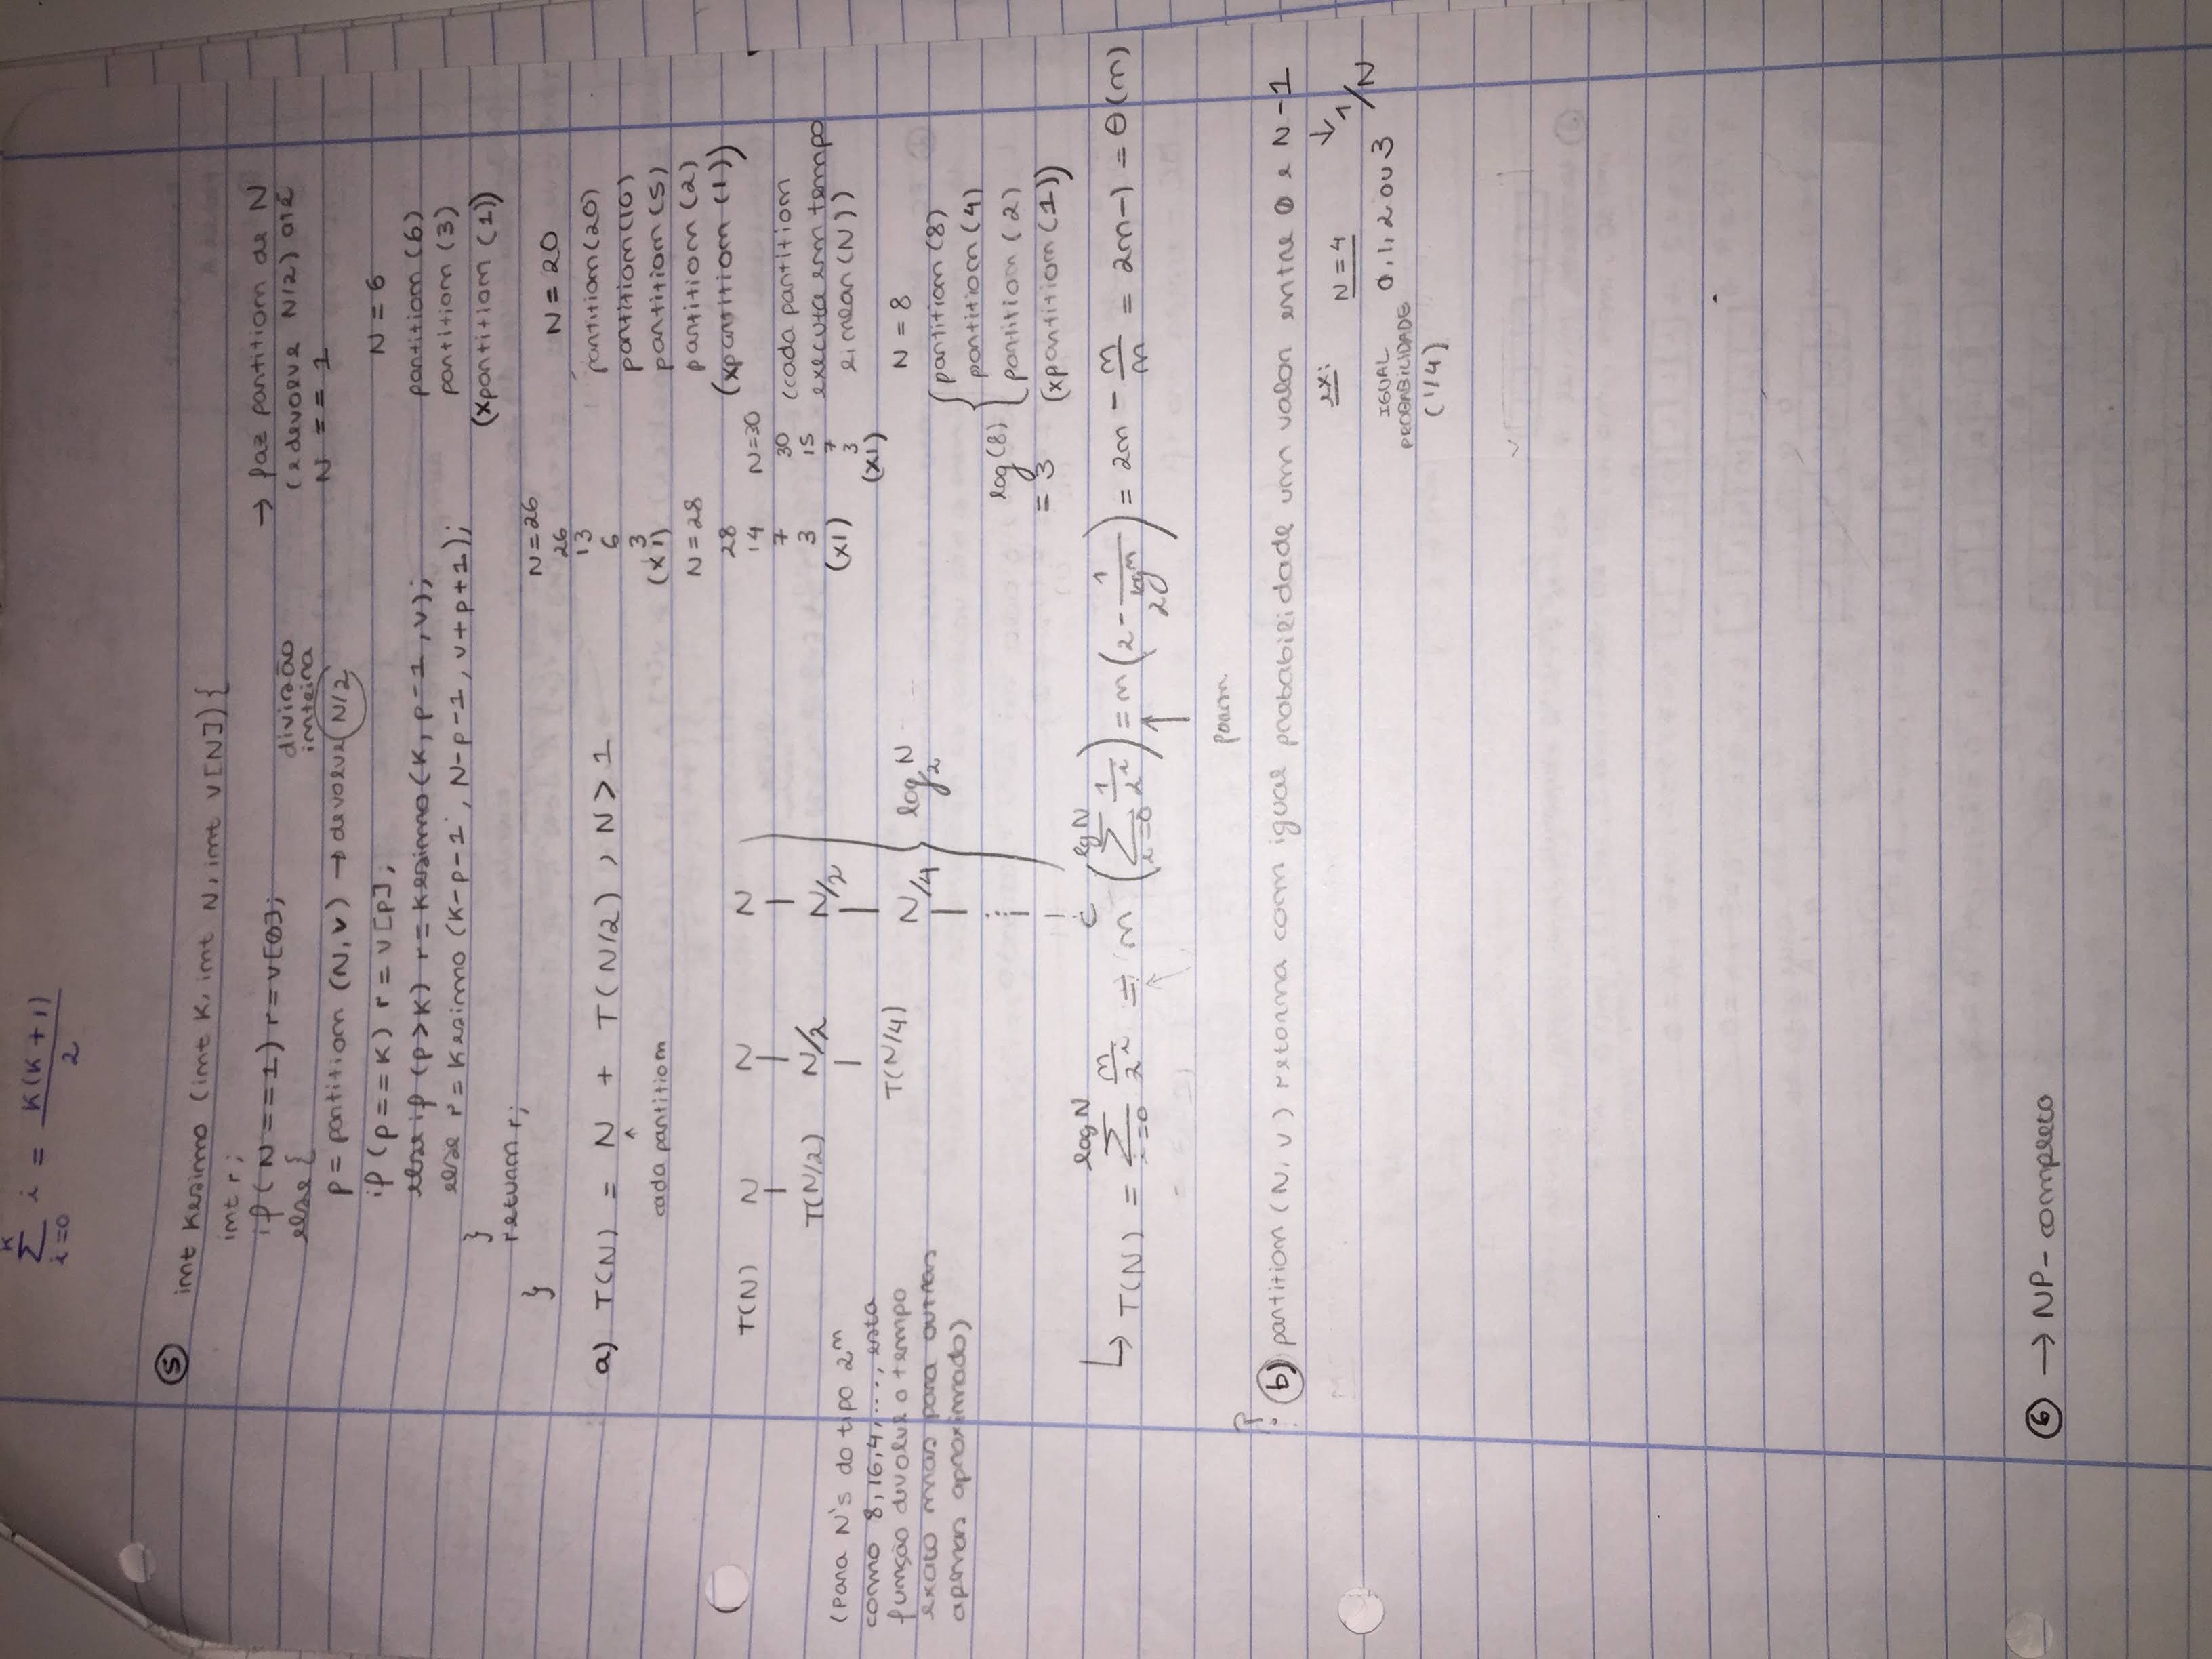 K
∑ i = K(K+1)
i=0 2
⑤ int Kesimo (int K, int N, int v[N]) {
int r;
if (N==1) r=v[0];
else {
p = partition (N, v) → devolve N/2
divisão
inteira
if (p==K) r = v[p];
else if (p>K) r = Kesimo (K, p-1, v);
else r = Kesimo (K-p-1, N-p-1, v+p+1);
}
return r;
}
→ faz partition de N
(e devolve N/2) até
N == 1
N = 6
partition (6)
partition (3)
(xpartition (1))
N = 20
partition (20)
partition (10)
partition (5)
partition (2)
(xpartition (1))
N=26
26
13
6
3
(x1)
N=28
28
14
7
3
(x1)
N=30
30
15
7
3
(x1)
(cada partition
executa em tempo
linear (N))
N = 8
partition (8)
partition (4)
partition (2)
(xpartition (1))
log(8)
= 3
a) T(N) = N + T(N/2), N > 1
^
cada partition
T(N) N N N
T(N/2) N/2 N/2
T(N/4) N/4
log₂N
(Para N's do tipo 2ⁿ
como 8, 16, 4, ..., esta
função divolve o tempo
exato mas para outros
apenas aproximado)
↳ T(N) = ∑_{i=0}^{log N} n/2^i = n (∑_{i=0}^{lg N} 1/2^i) = n (2 - 1/2^{log n}) = 2n - n/n = 2n-1 = Θ(n)
?
b) partition (N, v) retorna com igual probabilidade um valor entre 0 e N-1
↓ 1/N
ex: N = 4
0, 1, 2 ou 3
IGUAL
PROBABILIDADE
(1/4)
⑥ → NP-completo